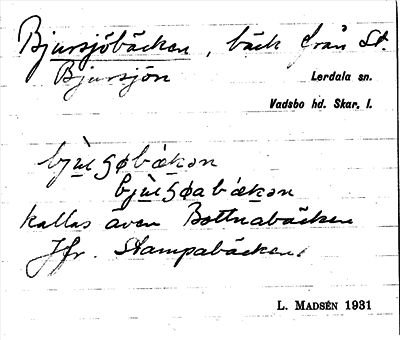 Bjursjöbäcken, bäck från St.
Bjursjön
Lerdala sn.
Vadsbo hd. Skar. l.
kallas även Bottnabäcken
Jfr. Stampabäcken.
L. MADSÉN 1931